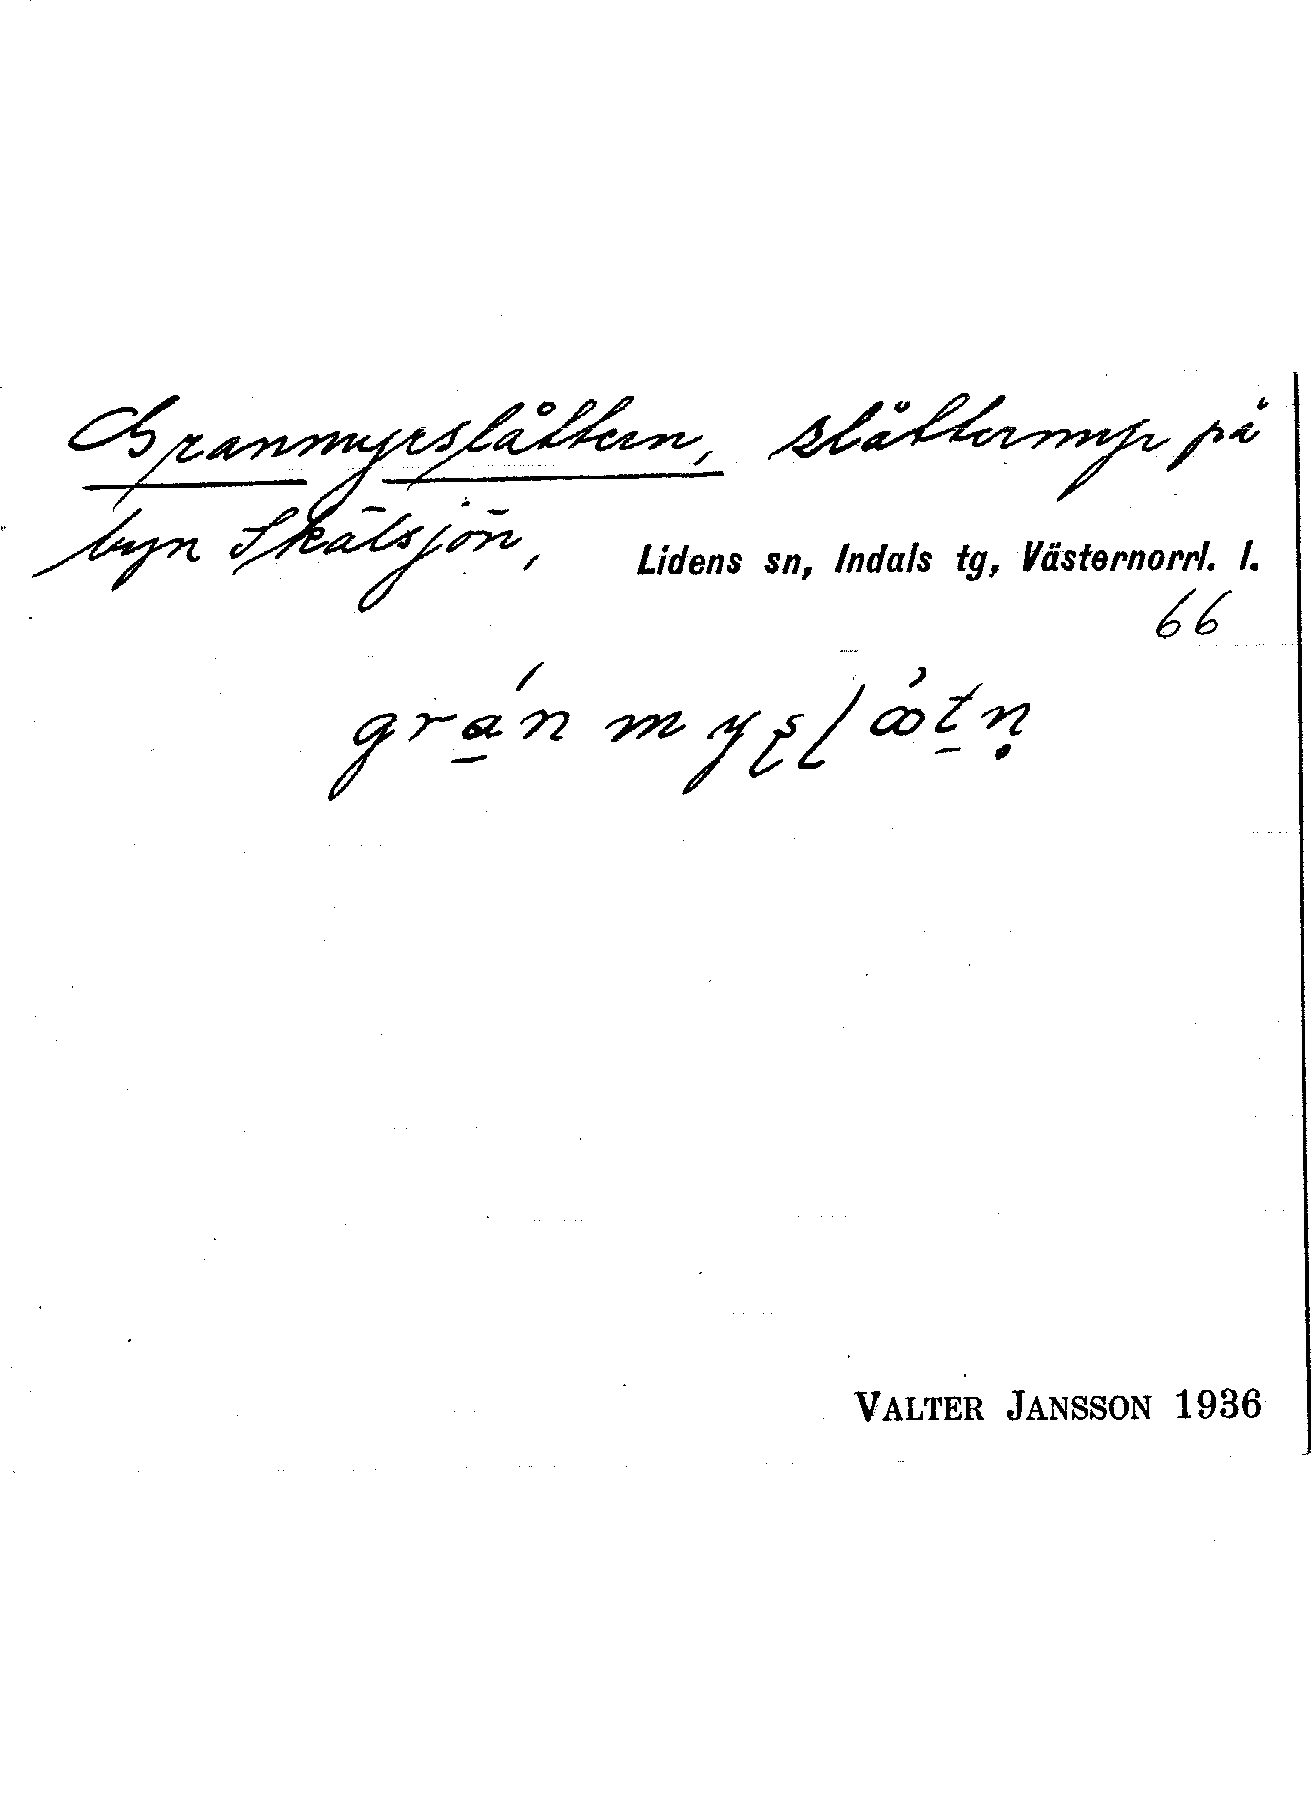 Granmyrslåttern, slåttermyr på
byn Skälsjön, Lidens sn, Indals tg, Västernorrl. l.
66
VALTER JANSSON 1936